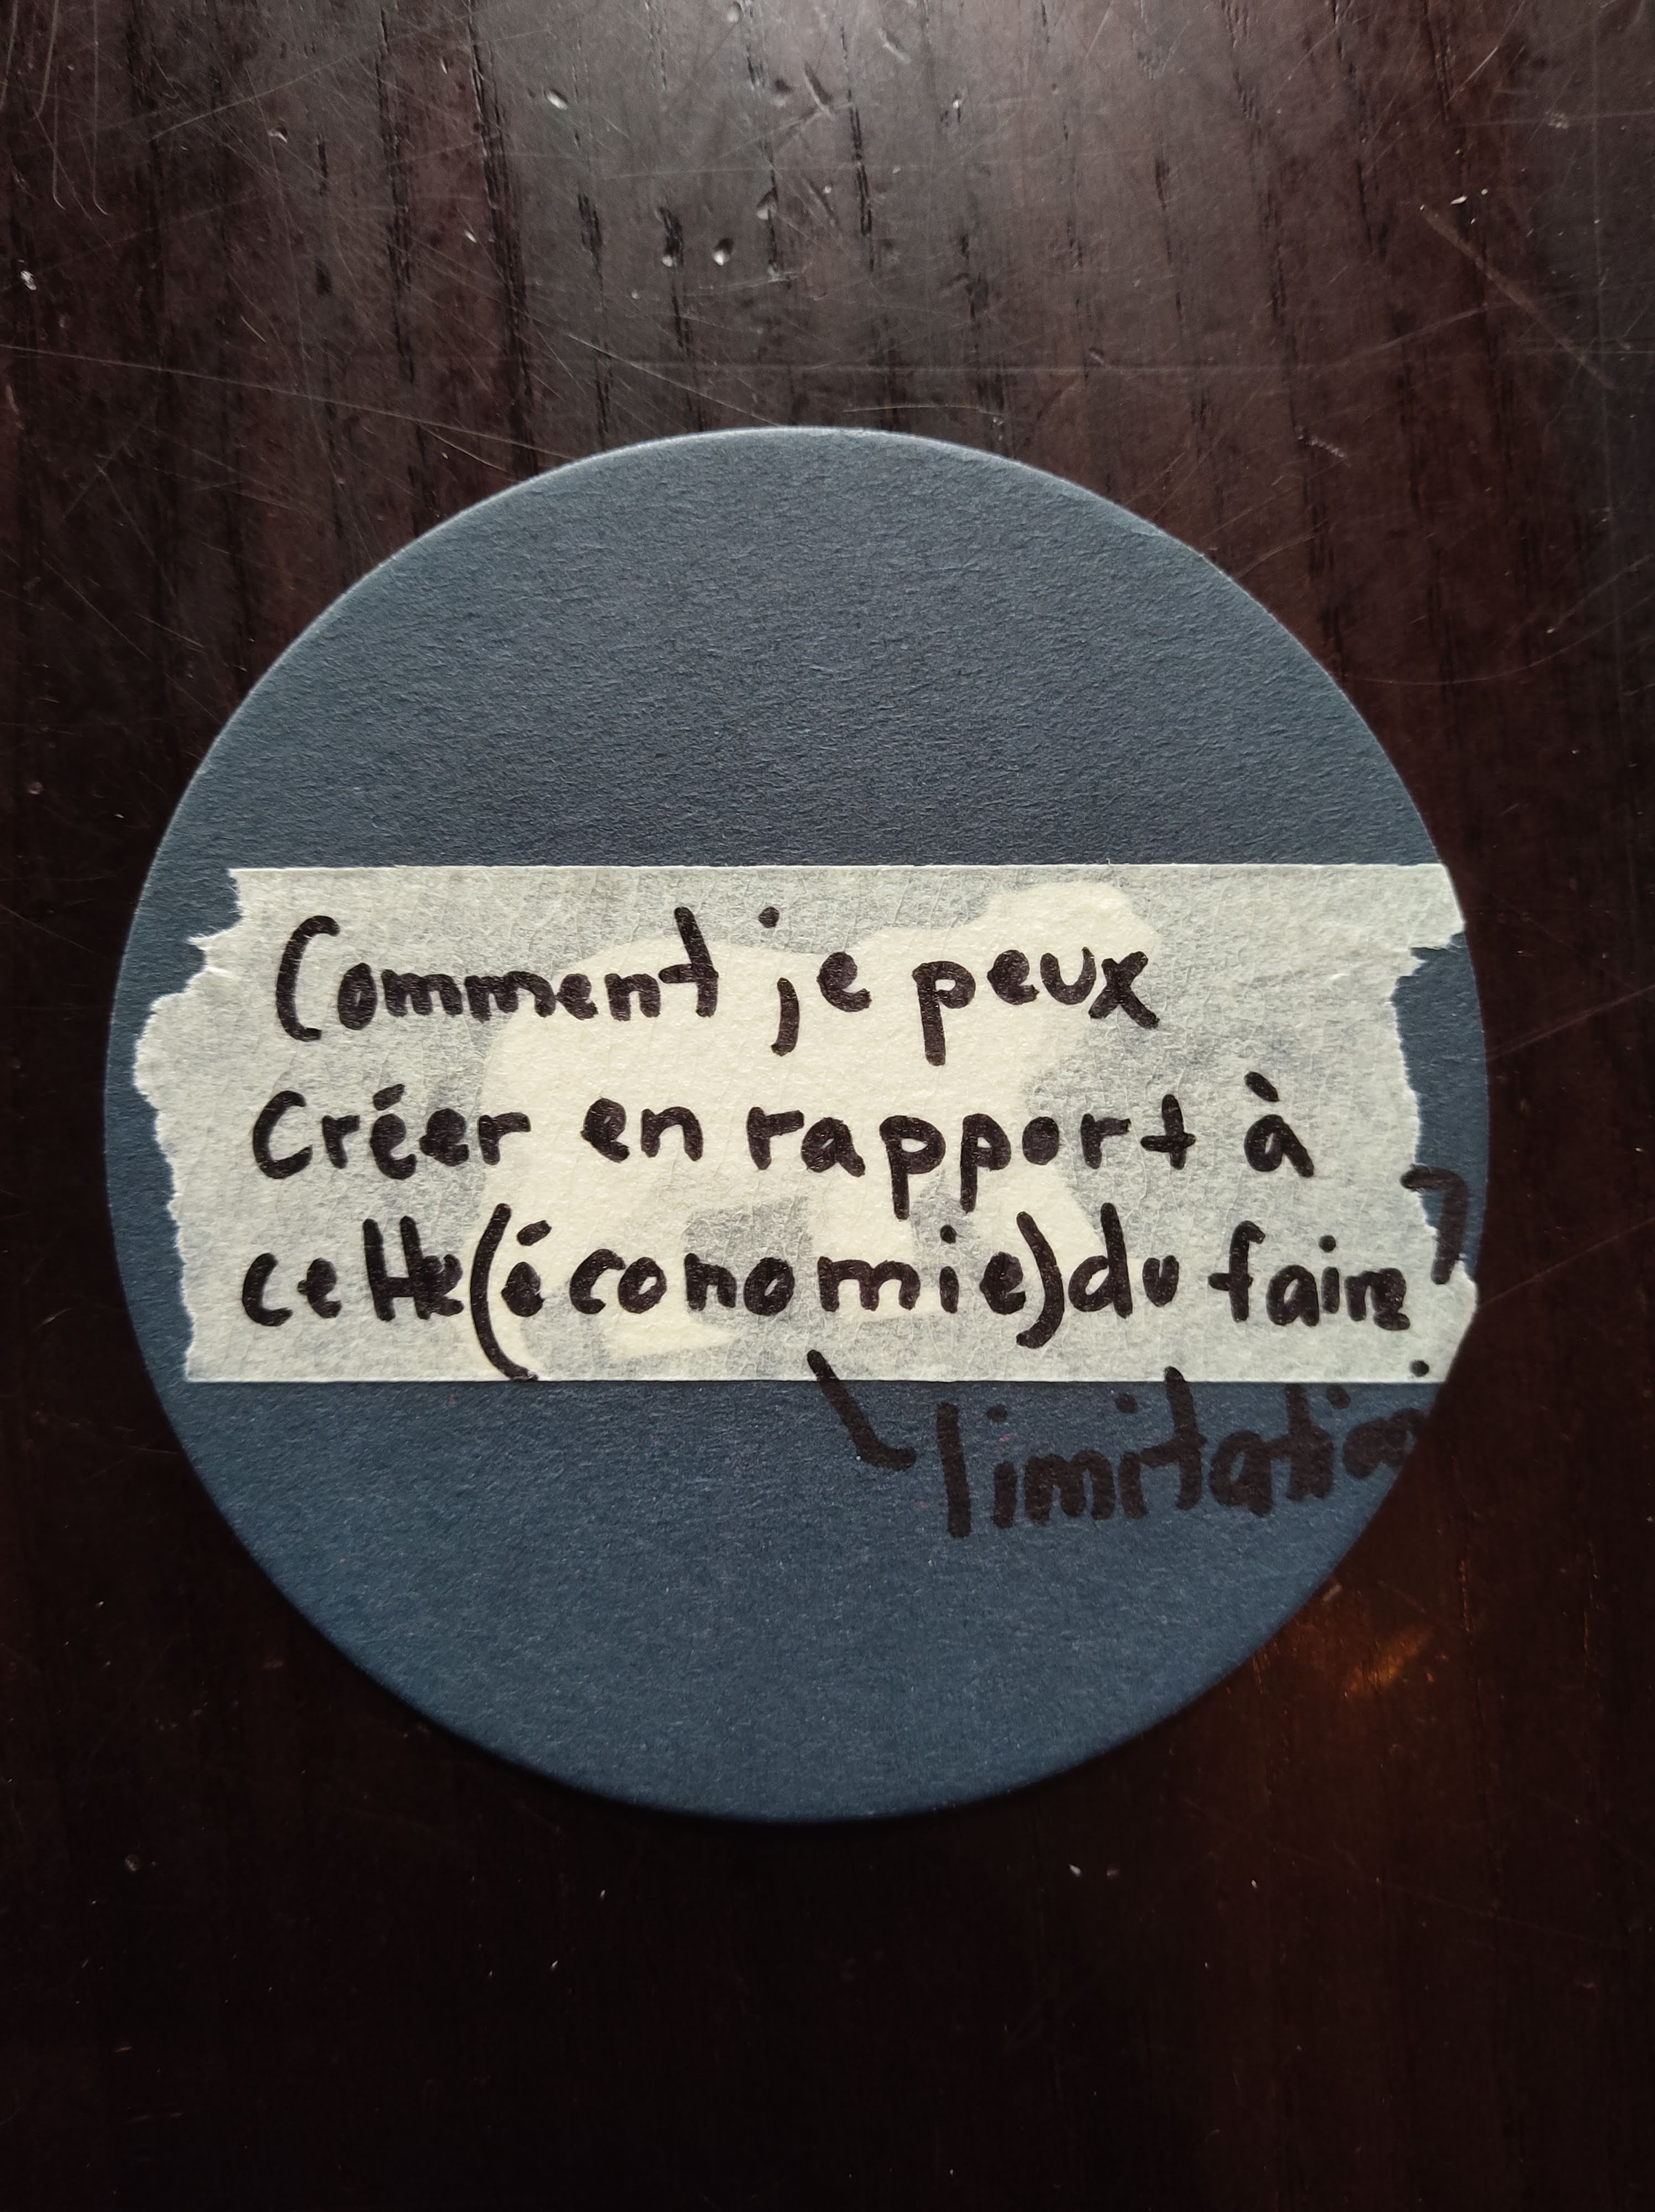 Comment je peux
Créer en rapport à
cette (économie) du faire ?
limitation